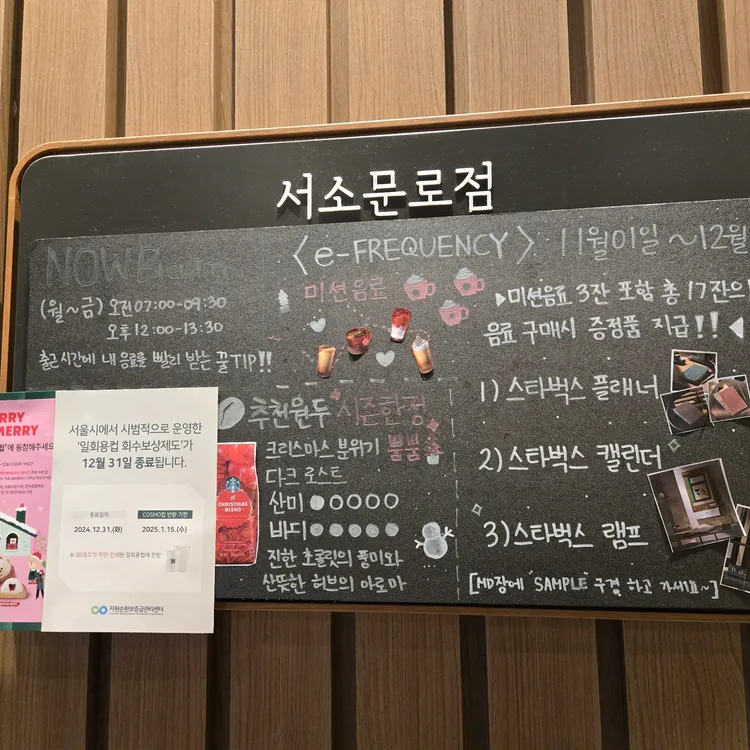 서소문로점
NOW Brewing
(월~금) 오전 07:00-09:30
오후 12:00-13:30
출근시간에 내 음료를 빨리 받는 꿀TIP!!
<e-FREQUENCY> 11월01일~12월
미션음료
▶미션음료 3잔 포함 총 17잔의
음료 구매시 증정품 지급!!◀
1) 스타벅스 플래너
2) 스타벅스 캘린더
3) 스타벅스 램프
[MD장에 "SAMPLE" 구경 하고 가세요~]
추천원두 시즌한정
크리스마스 분위기 뿜뿜
다크 로스트
산미 ●○○○○
바디 ●●●●●
진한 초콜릿의 풍미와
산뜻한 허브의 아로마
CHRISTMAS
BLEND
RRY
MERRY
에 동참해주세요
서울시에서 시범적으로 운영한
'일회용컵 회수보상제도'가
12월 31일 종료됩니다.
종료일자
2024.12.31.(화)
COSMO컵 반환 기한
2025.1.15.(수)
※ QR코드가 각인·인쇄된 일회용컵에 한함
자원순환보증금관리센터